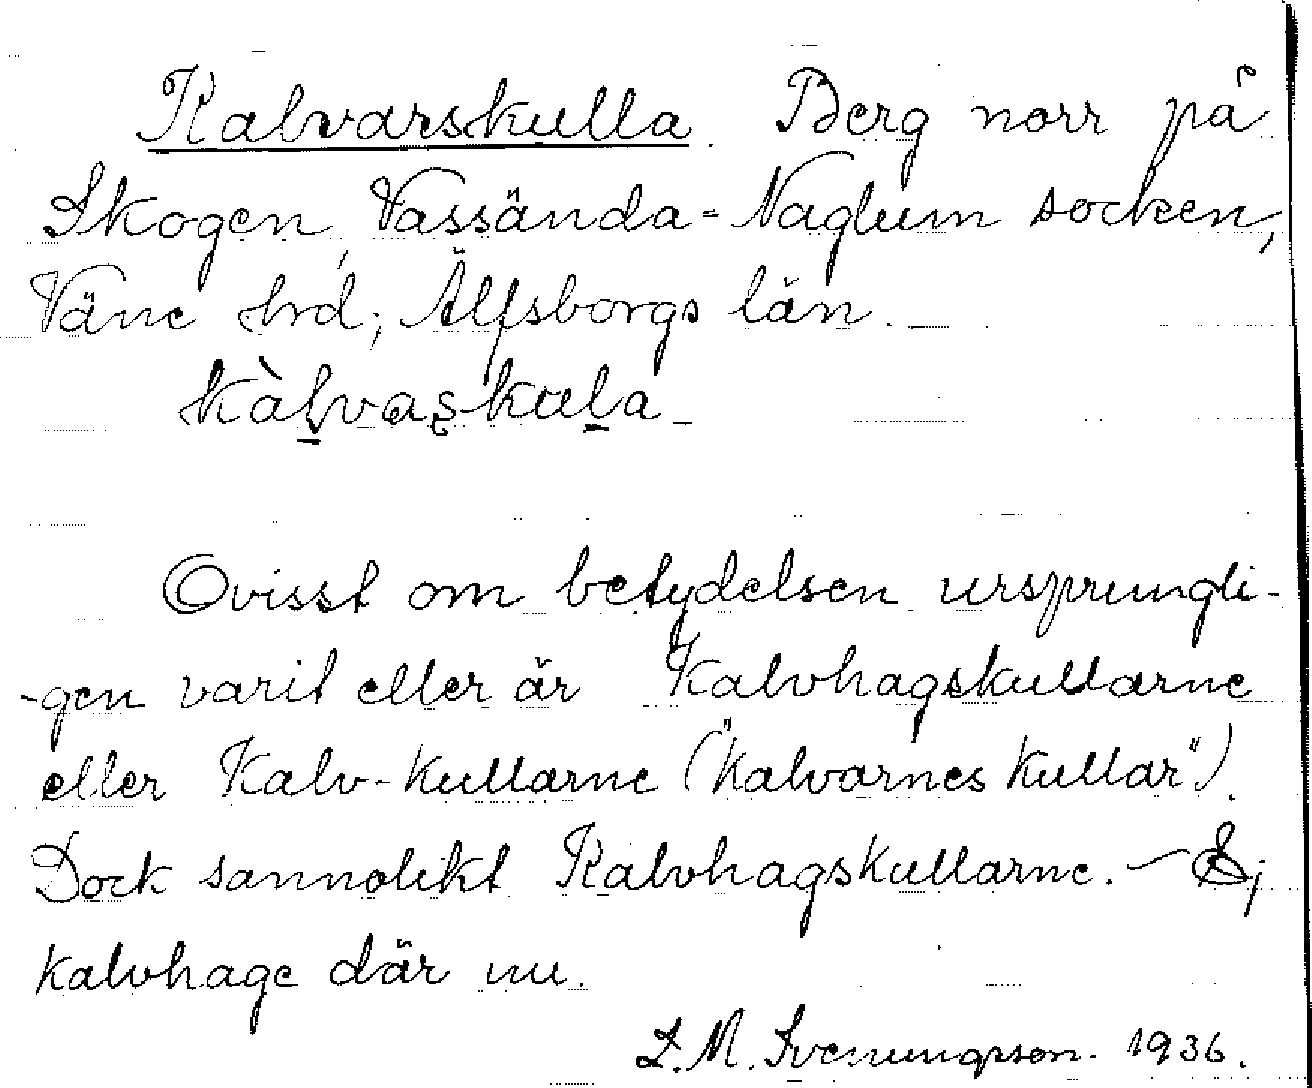 Kalvarskulla. Berg norr på
Skogen, Vassända-Naglum socken,
Väne hrd, Älfsborgs län.
kàl̠vaʂkul̠a
Ovisst om betydelsen ursprungli-
-gen varit eller är Kalvhagskullarne
eller Kalv-kullarne ("kalvarnes kullar").
Dock sannolikt Kalvhagskullarne. – Ej
kalvhage där nu.
L.M. Svenungsson. 1936.